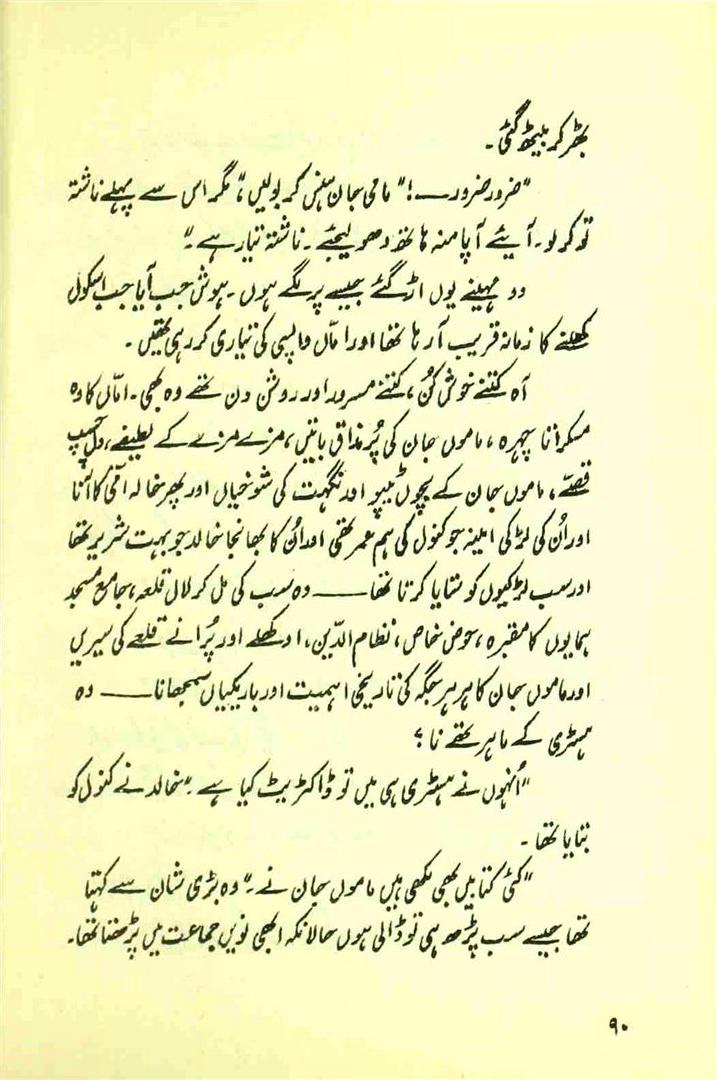 بھڑ کر بیٹھ گئی۔
"ضرور ضرور ــــ!" مامی جان ہنس کر بولیں، "مگر اس سے پہلے ناشتہ
تو کر لو۔ آیئے آپا منہ ہاتھ دھو لیجئے۔ ناشتہ تیار ہے۔"
دو مہینے یوں اڑ گئے جیسے پر لگے ہوں۔ ہوش جب آیا جب اسکول
کھلنے کا زمانہ قریب آرہا تھا اور امّاں واپسی کی تیاری کر رہی تھیں۔
آہ کتنے خوش کُن، کتنے مسرور اور روشن دن تھے وہ بھی۔ امّاں کا وہ
مسکراتا چہرہ، ماموں جان کی پُر مذاق باتیں، مزے مزے کے لطیفے، دل چسپ
قصّے، ماموں جان کے بچوں ٹیپو اور نگہت کی شوخیاں اور پھر خالہ امّی کا آنا
اور اُن کی لڑکی امینہ جو کنول کی ہم عمر تھی اور اُن کا بھانجا خالد جو بہت شریر تھا
اور سب لڑکیوں کو ستایا کرتا تھا ــــ وہ سب کی مل کر لال قلعہ، جامع مسجد
ہمایوں کا مقبرہ، حوض خاص، نظام الدّین، اوکھلے اور پُرانے قلعے کی سیریں
اور ماموں جان کا ہر ہر جگہ کی تاریخی اہمیت اور باریکیاں سمجھانا ــــ وہ
ہسٹری کے ماہر تھے نا؟
"اُنہوں نے ہسٹری ہی میں تو ڈاکٹریٹ کیا ہے۔" خالد نے کنول کو
بتایا تھا۔
"کئی کتابیں بھی لکھی ہیں ماموں جان نے۔" وہ بڑی شان سے کہتا
تھا جیسے سب پڑھ ہی تو ڈالی ہوں حالانکہ ابھی نویں جماعت میں پڑھتا تھا۔
۹۰